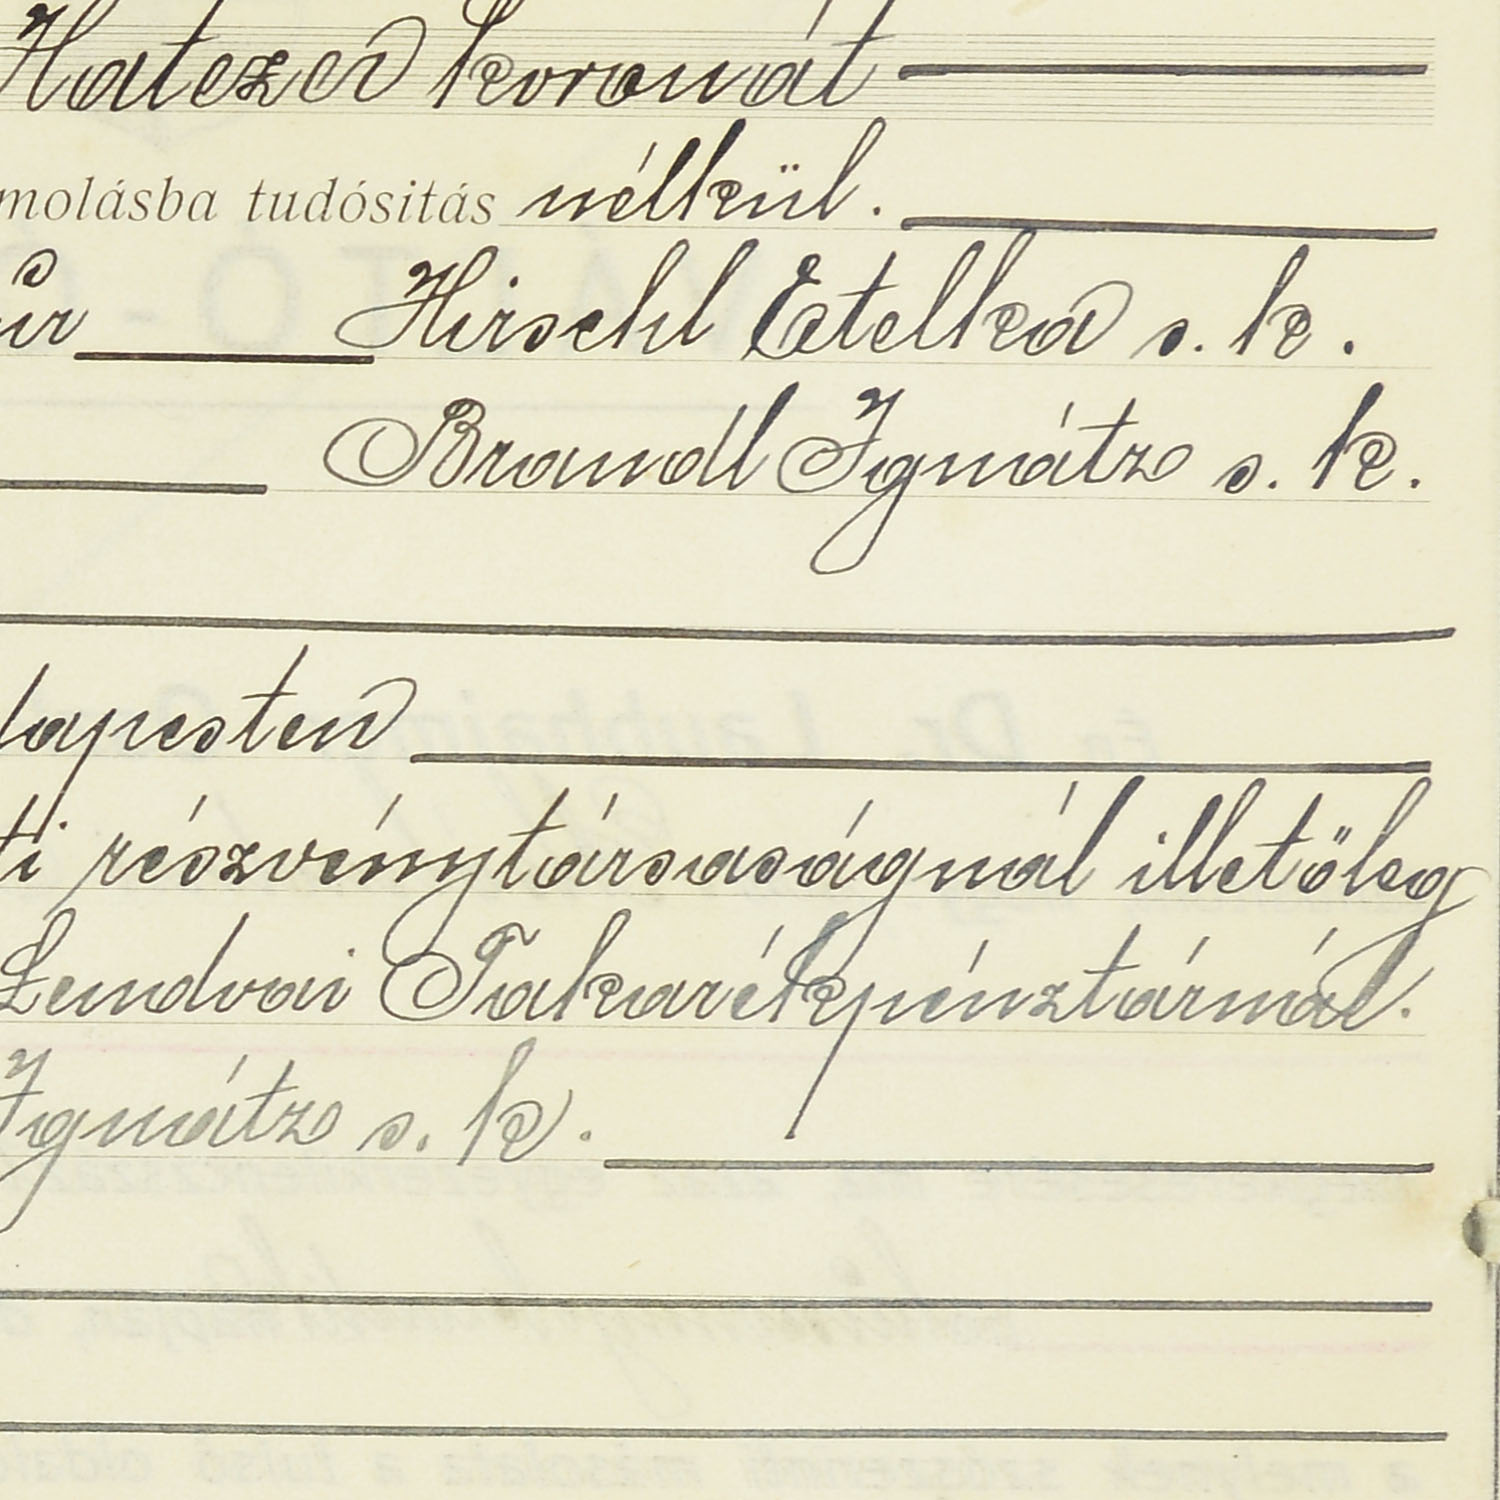 Hatezer koronát
molásba tudósitás nélkül.
úr Hirschl Etelka s. k.
Brandl Ignátz s. k.
dapesten
ti részvénytársaságnál illetőleg
Lendvai Takarékpénztárnál.
Ignátz s. k.